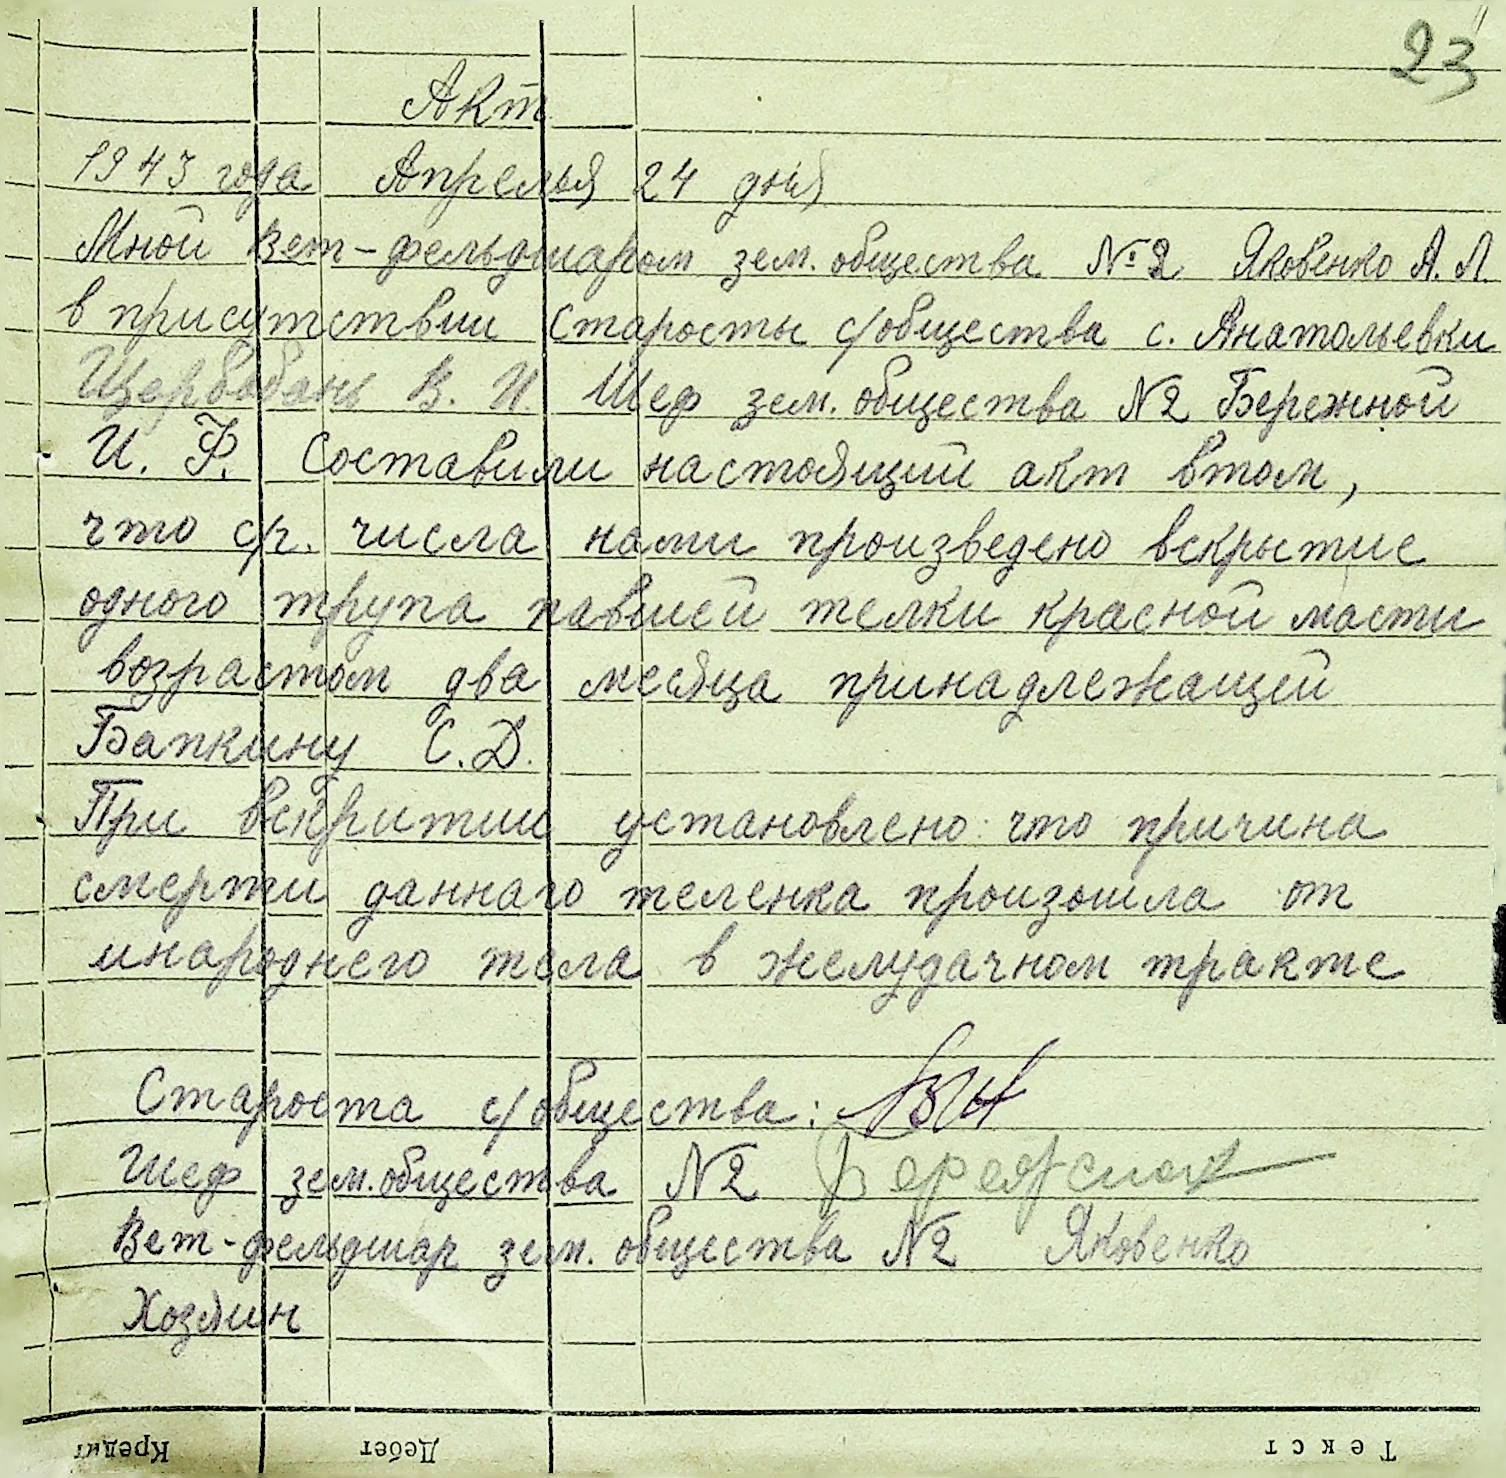 23
Акт
1943 года Апрелья 24 дня
Мной Вет-фельдшаром зем. общества №2 Яковенко А. Л.
в присутствии Старосты с/общества с. Анатольевки
Щербабань В. И. Шеф зем. общества №2 Бережной
И. Ф. Составили настоящий акт втом,
что с/г. числа нами произведено вскрытие
одного трупа павшей телки красной масти
возрастом два месяца принадлежащей
Бапкину С. Д.
При вскритии установлено что причина
смерти даннаго теленка произошла от
инароднего тела в желудачном тракте
Староста с/общества:
Шеф зем. общества №2 Бережной
Вет-фельдшар зем. общества №2 Яковенко
Хозяин
Кредит Дебет Текст